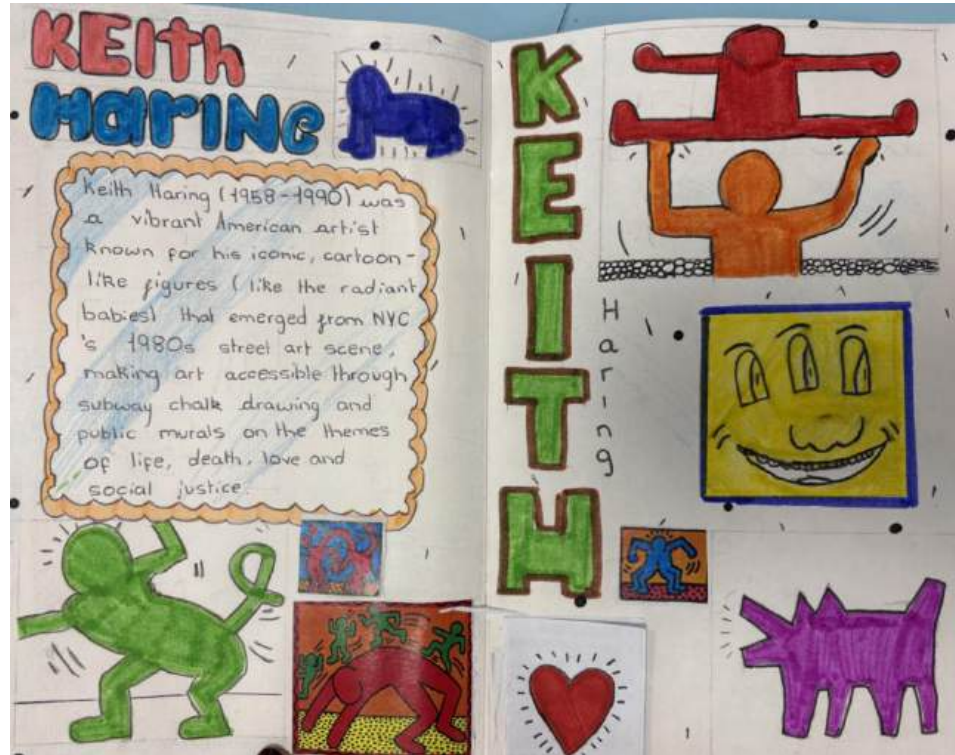 KEITH
HARING
Keith Haring (1958-1990) was
a vibrant American artist
known for his iconic, cartoon-
like figures (like the radiant
babies) that emerged from NYC
's 1980s street art scene,
making art accessible through
subway chalk drawing and
public murals on the themes
of life, death, love and
social justice.
KEITH
Haring